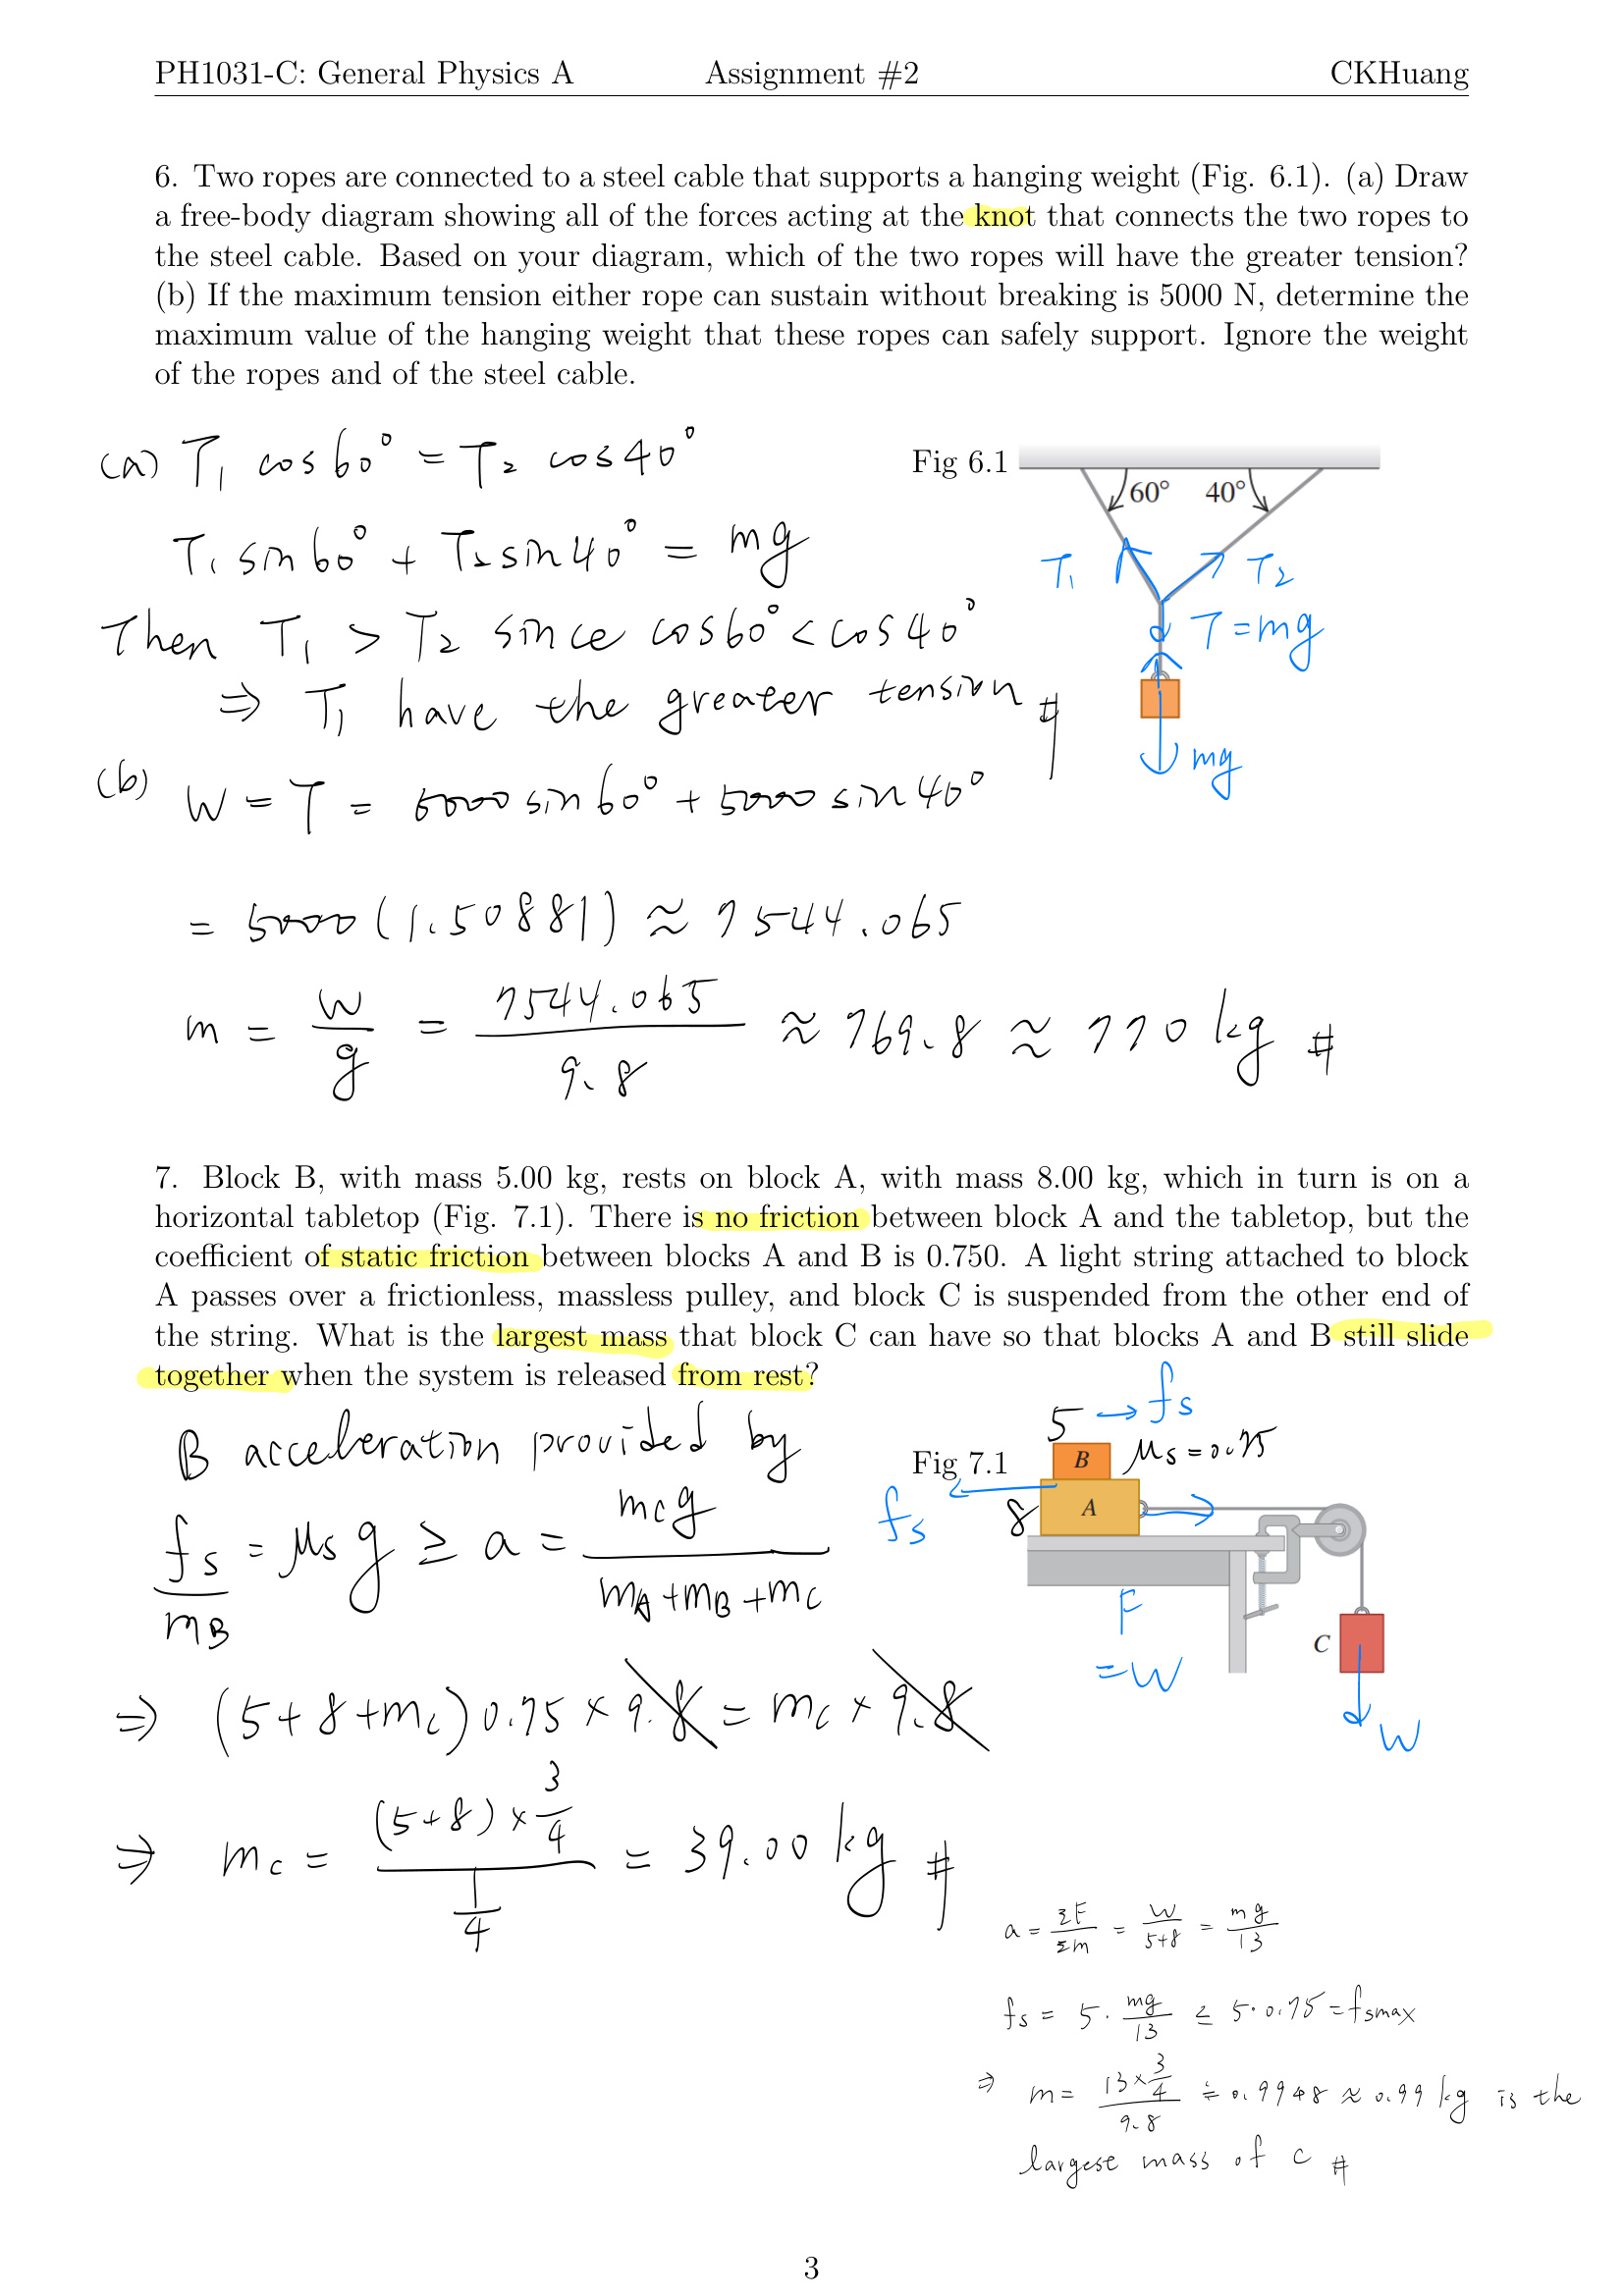 PH1031-C: General Physics A Assignment #2 CKHuang
6. Two ropes are connected to a steel cable that supports a hanging weight (Fig. 6.1). (a) Draw
a free-body diagram showing all of the forces acting at the knot that connects the two ropes to
the steel cable. Based on your diagram, which of the two ropes will have the greater tension?
(b) If the maximum tension either rope can sustain without breaking is 5000 N, determine the
maximum value of the hanging weight that these ropes can safely support. Ignore the weight
of the ropes and of the steel cable.
(a) T₁ cos60° = T₂ cos40°
T₁ sin60° + T₂ sin40° = mg
Then T₁ > T₂ since cos60° < cos40°
⇒ T₁ have the greater tension #
Fig 6.1
60° 40°
T₁ T₂
T=mg
mg
(b) W = T = 5000 sin60° + 5000 sin40°
= 5000 (1.50881) ≈ 7544.065
m = W/g = 7544.065/9.8 ≈ 769.8 ≈ 770 kg #
7. Block B, with mass 5.00 kg, rests on block A, with mass 8.00 kg, which in turn is on a
horizontal tabletop (Fig. 7.1). There is no friction between block A and the tabletop, but the
coefficient of static friction between blocks A and B is 0.750. A light string attached to block
A passes over a frictionless, massless pulley, and block C is suspended from the other end of
the string. What is the largest mass that block C can have so that blocks A and B still slide
together when the system is released from rest?
B acceleration provided by
fs/mB = μs g ≥ a = mcg/(mA+mB+mC)
⇒ (5+8+mc) 0.75 × 9.8 = mc × 9.8
⇒ mc = (5+8)×3/4 / 1/4 = 39.00 kg #
Fig 7.1
5 → fs
B μs=0.75
fs 8 A
F
=W
C
W
a = ΣF/Σm = W/5+8 = mg/13
fs = 5 · mg/13 ≤ 5·0.75 = fsmax
⇒ m = 13×3/4 / 9.8 ≒ 0.9948 ≈ 0.99 kg is the
largest mass of C #
3